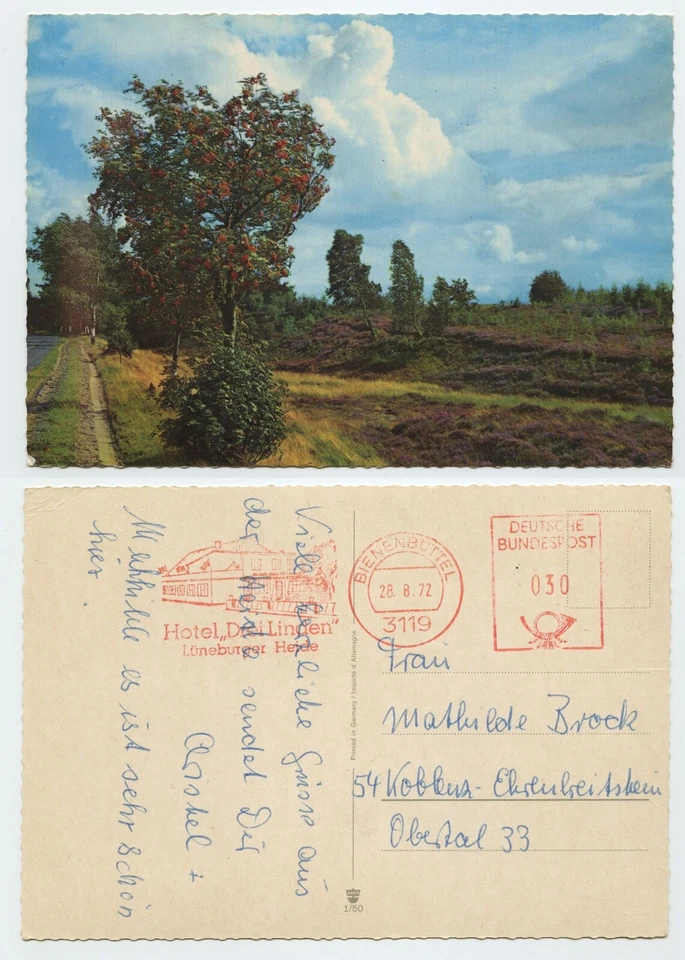 Viele herzliche Grüsse aus
der Heide sendet Dir
Christel +
Mathilde es ist sehr schön
hier.
Hotel „Drei Linden"
Lüneburger Heide
BIENENBÜTTEL
28.8.72
3119
DEUTSCHE
BUNDESPOST
030
Frau
Mathilde Brock
54 Koblenz-Ehrenbreitstein
Obertal 33
Printed in Germany / Importé d'Allemagne
1/50